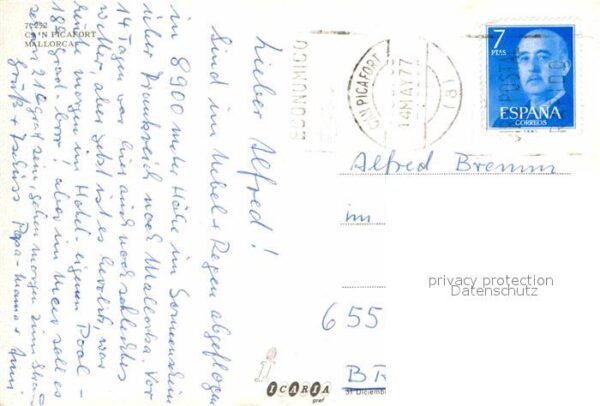 70252
CA'N PICAFORT
MALLORCA
Lieber Alfred!
Sind im Nebel + Regen abgeflogen
in 8900 meter Höhe im Sonnenschein
über Frankreich nach Mallorka. Vor
14 Tagen war hier auch noch schlechtes
wetter, aber jetzt ist es herrlich, war
heute morgen im Hotel-eigenen Pool -
18 grad - brrr! aber im Meer soll es
21 grad sein, gehen morgen zum
Grüße + Papa-Mama +
ECONOMICO
CA'N PICAFORT
14 MAY 77
(8)
POSTAL
7
PTAS
ESPAÑA
CORREOS
Alfred Bremm
im
privacy protection
Datenschutz
655
BR
i
ICARIA
graf
31 Diciemb